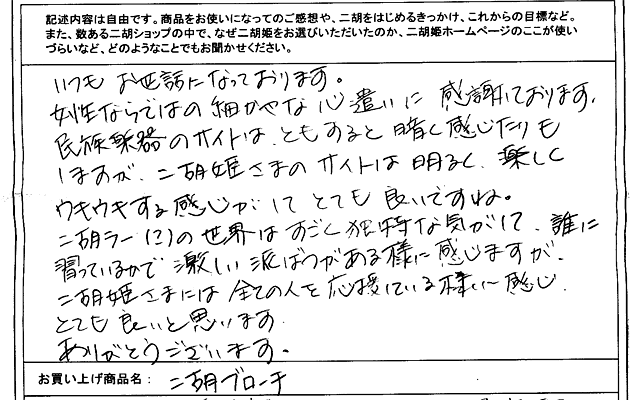 記述内容は自由です。商品をお使いになってのご感想や、二胡をはじめるきっかけ、これからの目標など。
また、数ある二胡ショップの中で、なぜ二胡姫をお選びいただいたのか、二胡姫ホームページのここが使い
づらいなど、どのようなことでもお聞かせください。
いつもお世話になっております。
女性ならではの細かやな心遣いに感謝しております。
民族楽器のサイトは、ともすると暗く感じたりも
しますが、二胡姫さまのサイトは明るく、楽しく
ウキウキする感じがしてとても良いですね。
二胡ラー(?)の世界はすごく独特な気がして、誰に
習っているかで激しい派ばつがある様に感じますが、
二胡姫さまには全ての人を応援している様に感じ
とても良いと思います
ありがとうございます。
お買い上げ商品名： 二胡ブローチ